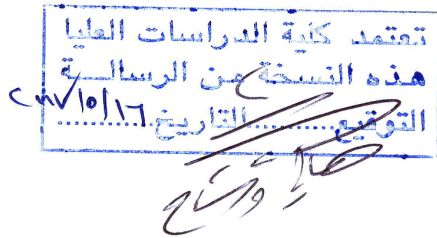 تعتمد كلية الدراسات العليا
هذه النسخة من الرسالــة
التوقيع............التاريخ ٢٠١٧/٥/١٦